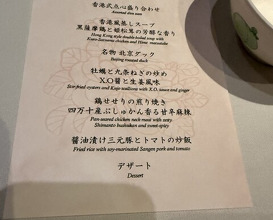 香港式点心盛り合わせ
Assorted dim sum
香港風蒸しスープ
黒薩摩鶏と蝦松茸の芳醇な香り
Hong Kong style double-boiled soup with
Kuro-Satsuma chicken and Hime matsutake
名物 北京ダック
Beijing roasted duck
牡蠣と九条ねぎの炒め
X.O醤と生姜風味
Stir-fried oysters and Kujo scallions with X.O. sauce and ginger
鶏せせりの煎り焼き
四万十産ぶしゅかん香る甘辛麻辣
Pan-seared chicken neck meat with spicy
Shimanto bushukan and sweet spicy
醤油漬け三元豚とトマトの炒飯
Fried rice with soy-marinated Sangen pork and tomato
デザート
Dessert